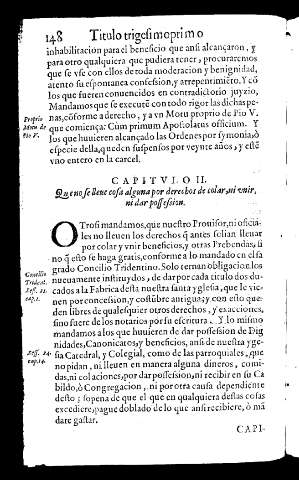 148 Titulo trigesimoprimo
inhabilitacion para el beneficio que ansi alcançaron, y
para otro qualquiera que pudiera tener, procuraremos
que se vse con ellos de toda moderacion y benignidad,
atento su espontanea confession, y arrepentimiẽto. Y cõ
los que fueren conuencidos en contradictorio juyzio,
Mandamos que se executẽ con todo rigor las dichas pe-
nas, cõforme a derecho, y a vn Motu proprio de Pio V.
que comiença: Cùm primum Apostolatus officium. Y
los que huuieren alcançado las Ordenes por symonia, ò
especie della, queden suspensos por veynte años, y estẽ
vno entero en la carcel.
Proprio
Motu de
Pio V.
CAPITVLO II.
Que no se lleue cosa alguna por derechos de colar, ni vnir,
ni dar possession.
OTrosi mandamos, que nuestro Prouisor, ni oficia-
les no lleuen los derechos q̃ antes solian lleuar
por colar y vnir beneficios, y otras Prebendas, si
no q̃ esto se haga gratis, conforme a lo mandado en el sa
grado Concilio Tridentino. Solo ternan obligacion los
nueuamente instituydos, de dar por cada titulo dos du-
cados a la Fabrica desta nuestra santa yglesia, que le vie-
nen por concession, y costũbre antigua; y con esto que-
den libres de qualesquier otros derechos, y exacciones,
sino fuere de los notarios por su escritura. Y lo mismo
mandamos a los que huuieren de dar possession de Dig
nidades, Canonicatos, y beneficios, ansi de nuestra ygle-
sia Catedral, y Colegial, como de las parroquiales, que
no pidan, ni lleuen en manera alguna dineros, comi-
das, ni colaciones, por dar possession, ni recibir en su Ca
bildo, ò Congregacion, ni por otra causa dependiente
desto; so pena de que el que en qualquiera destas cosas
excediere, pague doblado de lo que ansi recibiere, ò mã
dare gastar.
Concilio
Tridẽt.
Sess. 21.
cap. 1.
Sess. 24.
cap. 14.
CAPI-